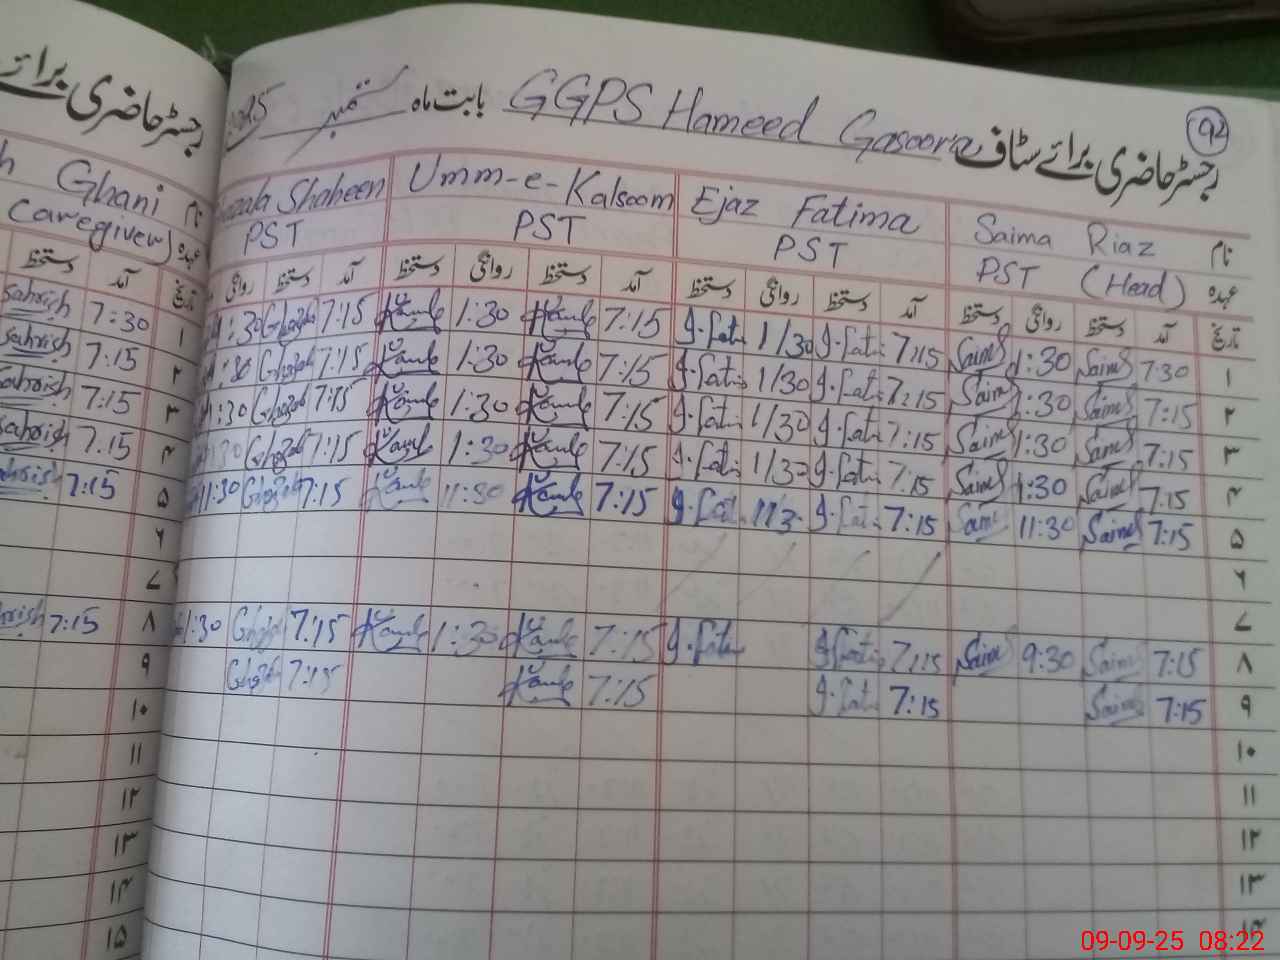 رجسٹر حاضری برائے سٹاف GGPS Hameed Gasoora بابت ماہ ستمبر 2025
92
رجسٹر حاضری برائے
نام Saima Riaz Ejaz Fatima Umm-e-Kalsoom Shaheen
عہدہ PST (Head) PST PST PST
نام Ghani
عہدہ caregiver)
تاریخ آمد دستخط روانگی دستخط آمد دستخط روانگی دستخط آمد دستخط روانگی دستخط آمد دستخط روانگی
تاریخ آمد دستخط
۱ 7:30 Saima 1:30 Saima 7:15 I.Fati 1/30 I.Fati 7:15 Kauls 1:30 Kauls 7:15 Ghazal 1:30
۲ 7:15 Saima 1:30 Saima 7:15 I.Fati 1/30 I.Fati 7:15 Kauls 1:30 Kauls 7:15 Ghazal 1:30
۳ 7:15 Saima 1:30 Saima 7:15 I.Fati 1/30 I.Fati 7:15 Kauls 1:30 Kauls 7:15 Ghazal 1:30
۴ 7:15 Saima 1:30 Saima 7:15 I.Fati 1/30 I.Fati 7:15 Kauls 1:30 Kauls 7:15 Ghazal 1:30
۵ 7:15 Saima 11:30 Saima 7:15 I.Fati 113 I.Fati 7:15 Kauls 11:30 Kauls 7:15 Ghazal 11:30
۶
۷
۸ 7:15 Saima 9:30 Saima 7:15 I.Fati I.Fati 7:15 Kauls 1:30 Kauls 7:15 Ghazal 1:30
۹ 7:15 Saima 7:15 I.Fati 7:15 Kauls 7:15 Ghazal
۱۰
۱۱
۱۲
۱۳
۱۴
۱ 7:30 Sahrish
۲ 7:15 Sahrish
۳ 7:15 Sahrish
۴ 7:15 Sahrish
۵ 7:15 Sahrish
۶
۷
۸ 7:15 Sahrish
۹
۱۰
۱۱
۱۲
۱۳
۱۴
۱۵
09-09-25 08:22